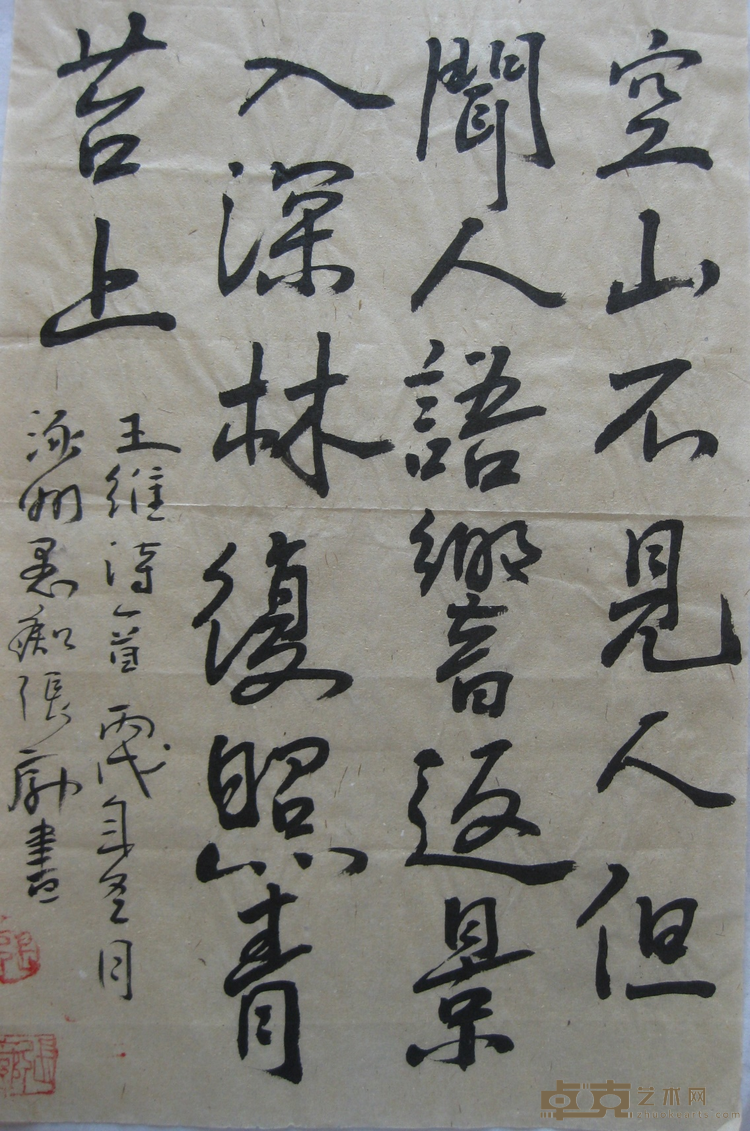 空山不見人但
聞人語響返景
入深林復照青
苔上
王維詩一首 丙戌年冬月
涿州愚痴張勵書
卓克艺术网